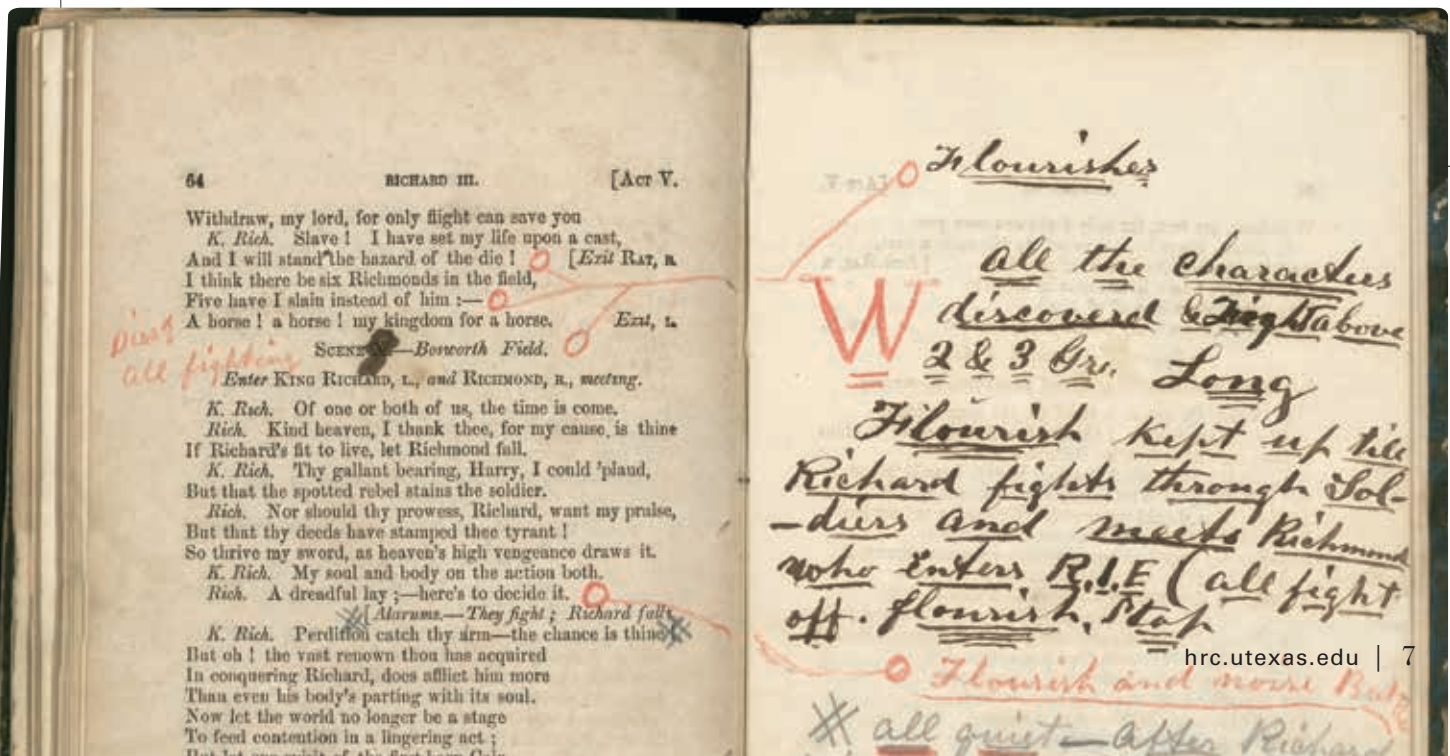 64 RICHARD III. [ACT V.
Withdraw, my lord, for only flight can save you
K. Rich. Slave ! I have set my life upon a cast,
And I will stand the hazard of the die ! [Exit RAT, R.
I think there be six Richmonds in the field,
Five have I slain instead of him :—
A horse ! a horse ! my kingdom for a horse. Exit, L.
all fighting
SCENE —Bosworth Field.
Enter KING RICHARD, L., and RICHMOND, R., meeting.
K. Rich. Of one or both of us, the time is come.
Rich. Kind heaven, I thank thee, for my cause is thine
If Richard's fit to live, let Richmond fall.
K. Rich. Thy gallant bearing, Harry, I could 'plaud,
But that the spotted rebel stains the soldier.
Rich. Nor should thy prowess, Richard, want my praise,
But that thy deeds have stamped thee tyrant !
So thrive my sword, as heaven's high vengeance draws it.
K. Rich. My soul and body on the action both.
Rich. A dreadful lay ;—here's to decide it.
[Alarums.—They fight ; Richard falls
K. Rich. Perdition catch thy arm—the chance is thine
But oh ! the vast renown thou has acquired
In conquering Richard, does afflict him more
Than even his body's parting with its soul.
Now let the world no longer be a stage
To feed contention in a lingering act ;
Flourishes
W
all the characters
discovered & Fight above
2 & 3 Gr. Long
Flourish kept up till
Richard fights through Sol-
-diers and meets Richmond
who Enters R.1.E (all fight
off. flourish, Stop
hrc.utexas.edu | 7
Flourish and more
all quiet — After